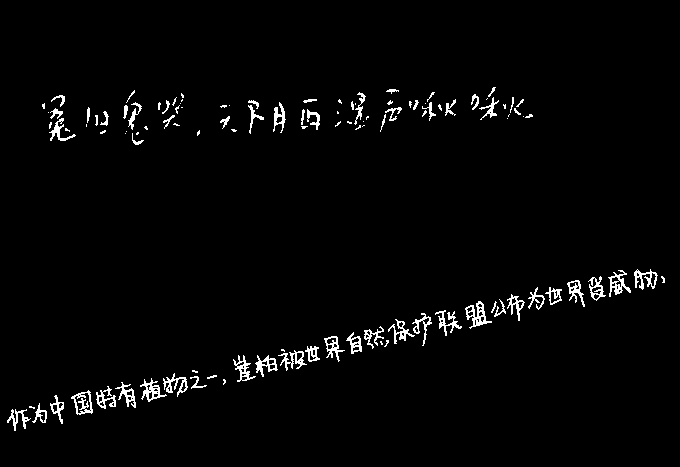 冤旧鬼哭，天阴雨湿声啾啾
作为中国特有植物之一，崖柏被世界自然保护联盟公布为世界受威胁、